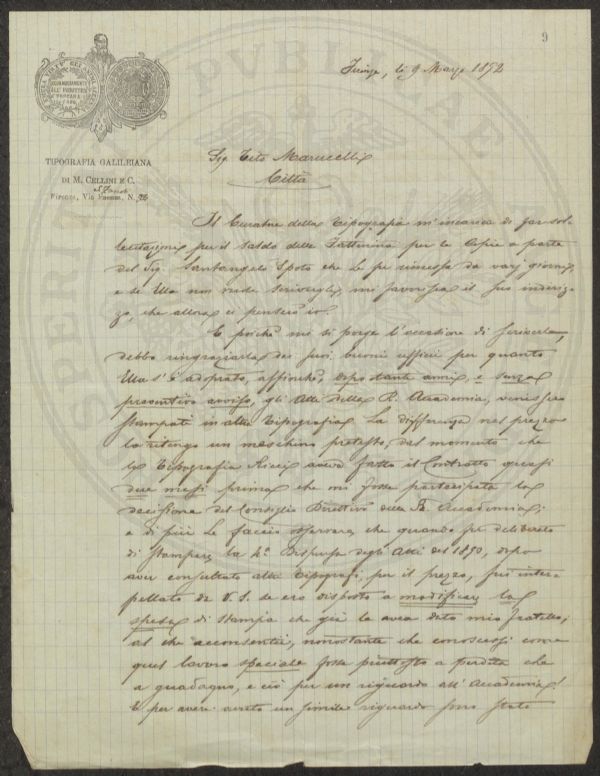 9
Firenze, li 9 Marzo 1892
TIPOGRAFIA GALILEIANA
DI M. CELLINI E C.
Firenze, Via Faenza, N. 72
Sig. Tito Marucelli
Città
Il Curatore della Tipografia m'incarica di far sol-
lecitazioni per il saldo della Fatturina per le Copie a parte
del Sig. Santangelo Spoto che Le fu rimessa da varj giorni,
e se Ella non vuole scrivergli, mi favorisca il suo indiriz-
zo, che allora ci penserò io.
E poichè mi si porge l'occasione di scriverLe,
debbo ringraziarLa dei suoi buoni ufficii per quanto
Ella s'è adoprato, affinchè, dopo tanti anni, e senza
preventivo avviso, gli Atti della R. Accademia, venissero
stampati in altra Tipografia. La differenza nel prezzo
la ritengo un meschino pretesto, dal momento che
la Tipografia Ricci aveva fatto il Contratto quasi
due mesi prima che mi fosse partecipata la
decisione del Consiglio Direttivo della R. Accademia;
e di più Le faccio osservare che quando fu deliberato
di stampare la 4a Dispensa degli Atti del 1890, dopo
aver consultato altri Tipografi, per il prezzo, fui inter-
pellato da V. S. se ero disposto a modificare la
spesa di stampa che già Le avea dato mio fratello;
al che acconsentii, nonostante che conoscessi come
quel lavoro speciale fosse piuttosto a perdita che
a guadagno, e ciò per un riguardo all'Accademia!
E per avere avuto un simile riguardo sono stato